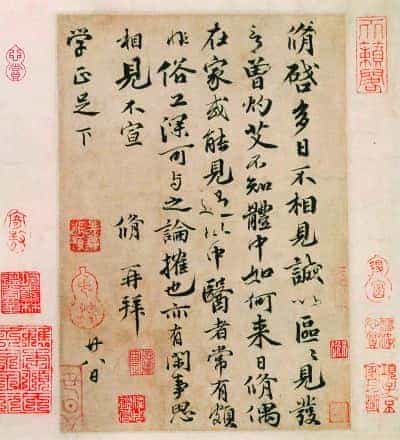 脩啓多日不相見誠以區〻見發
言曾灼艾不知體中如何来日脩偶
在家或能見過此中醫者常有頗
非俗工深可与之論搉也亦有閑事思
相見不宣 脩再拜
廿八日
学正足下
天籟閣